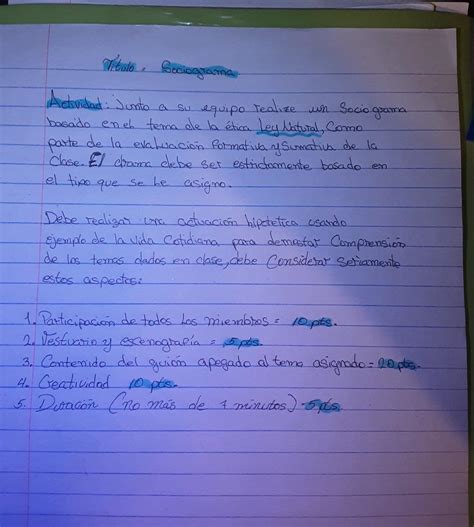 Título = Sociograma
Actividad: Junto a su equipo realize un Sociograma
basado en el tema de la ética Ley Natural, Como
parte de la evaluación Formativa y Sumativa de la
clase. El drama debe ser estrictamente basado en
el tipo que se le asigno.
Debe realizar una actuación hipotetica usando
ejemplo de la vida Cotidiana para demostar Comprensión
de los temas dados en clase, debe Considerar seriamente
estos aspectos:
1. Participación de todos los miembros = 10 pts.
2. Vestuario y escenografía = 5 pts.
3. Contenido del guión apegado al tema asignado = 20 pts.
4. Creatividad 10 pts.
5. Duración (no más de 7 minutos) 5 pts